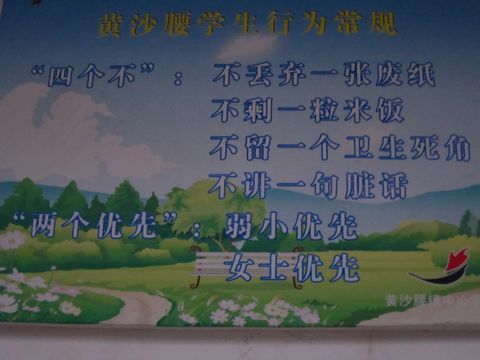 黄沙腰学生行为常规
“四个不”：不丢弃一张废纸
不剩一粒米饭
不留一个卫生死角
不讲一句脏话
“两个优先”：弱小优先
女士优先
黄沙腰镇中心